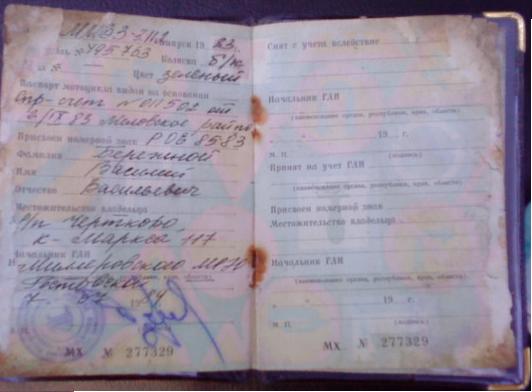 ММВЗ-3.112
выпуск 19 83 г.
№ 795763 Коляска б/к
№ Цвет зеленый
Паспорт мотоцикла выдан на основании
Спр-счет № от
83 Меловское райпо
Присвоен номерной знак РОВ 8583
Фамилия Бережной
Имя Василий
Отчество Васильевич
Местожительство владельца
р/п Чертково
К-Маркса 117
Начальник ГАИ
Миллеровского МРЭО
Ростовской
7. 84
М. П.
МХ № 277329
Снят с учета вследствие
Начальник ГАИ
(наименование органа, республики, края, области)
" " 19 г.
М. П. (подпись)
Принят на учет ГАИ
(наименование органа, республики, края, области)
Присвоен номерной знак
Местожительство владельца
Начальник ГАИ
(наименование органа, республики, края, области)
" " 19 г.
М. П. (подпись)
МХ № 277329